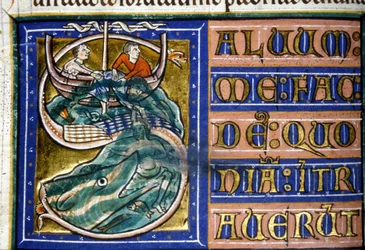 ALUUM:
ME: FAC
DE: QUO
NIĀ: ITR
AUERŪT